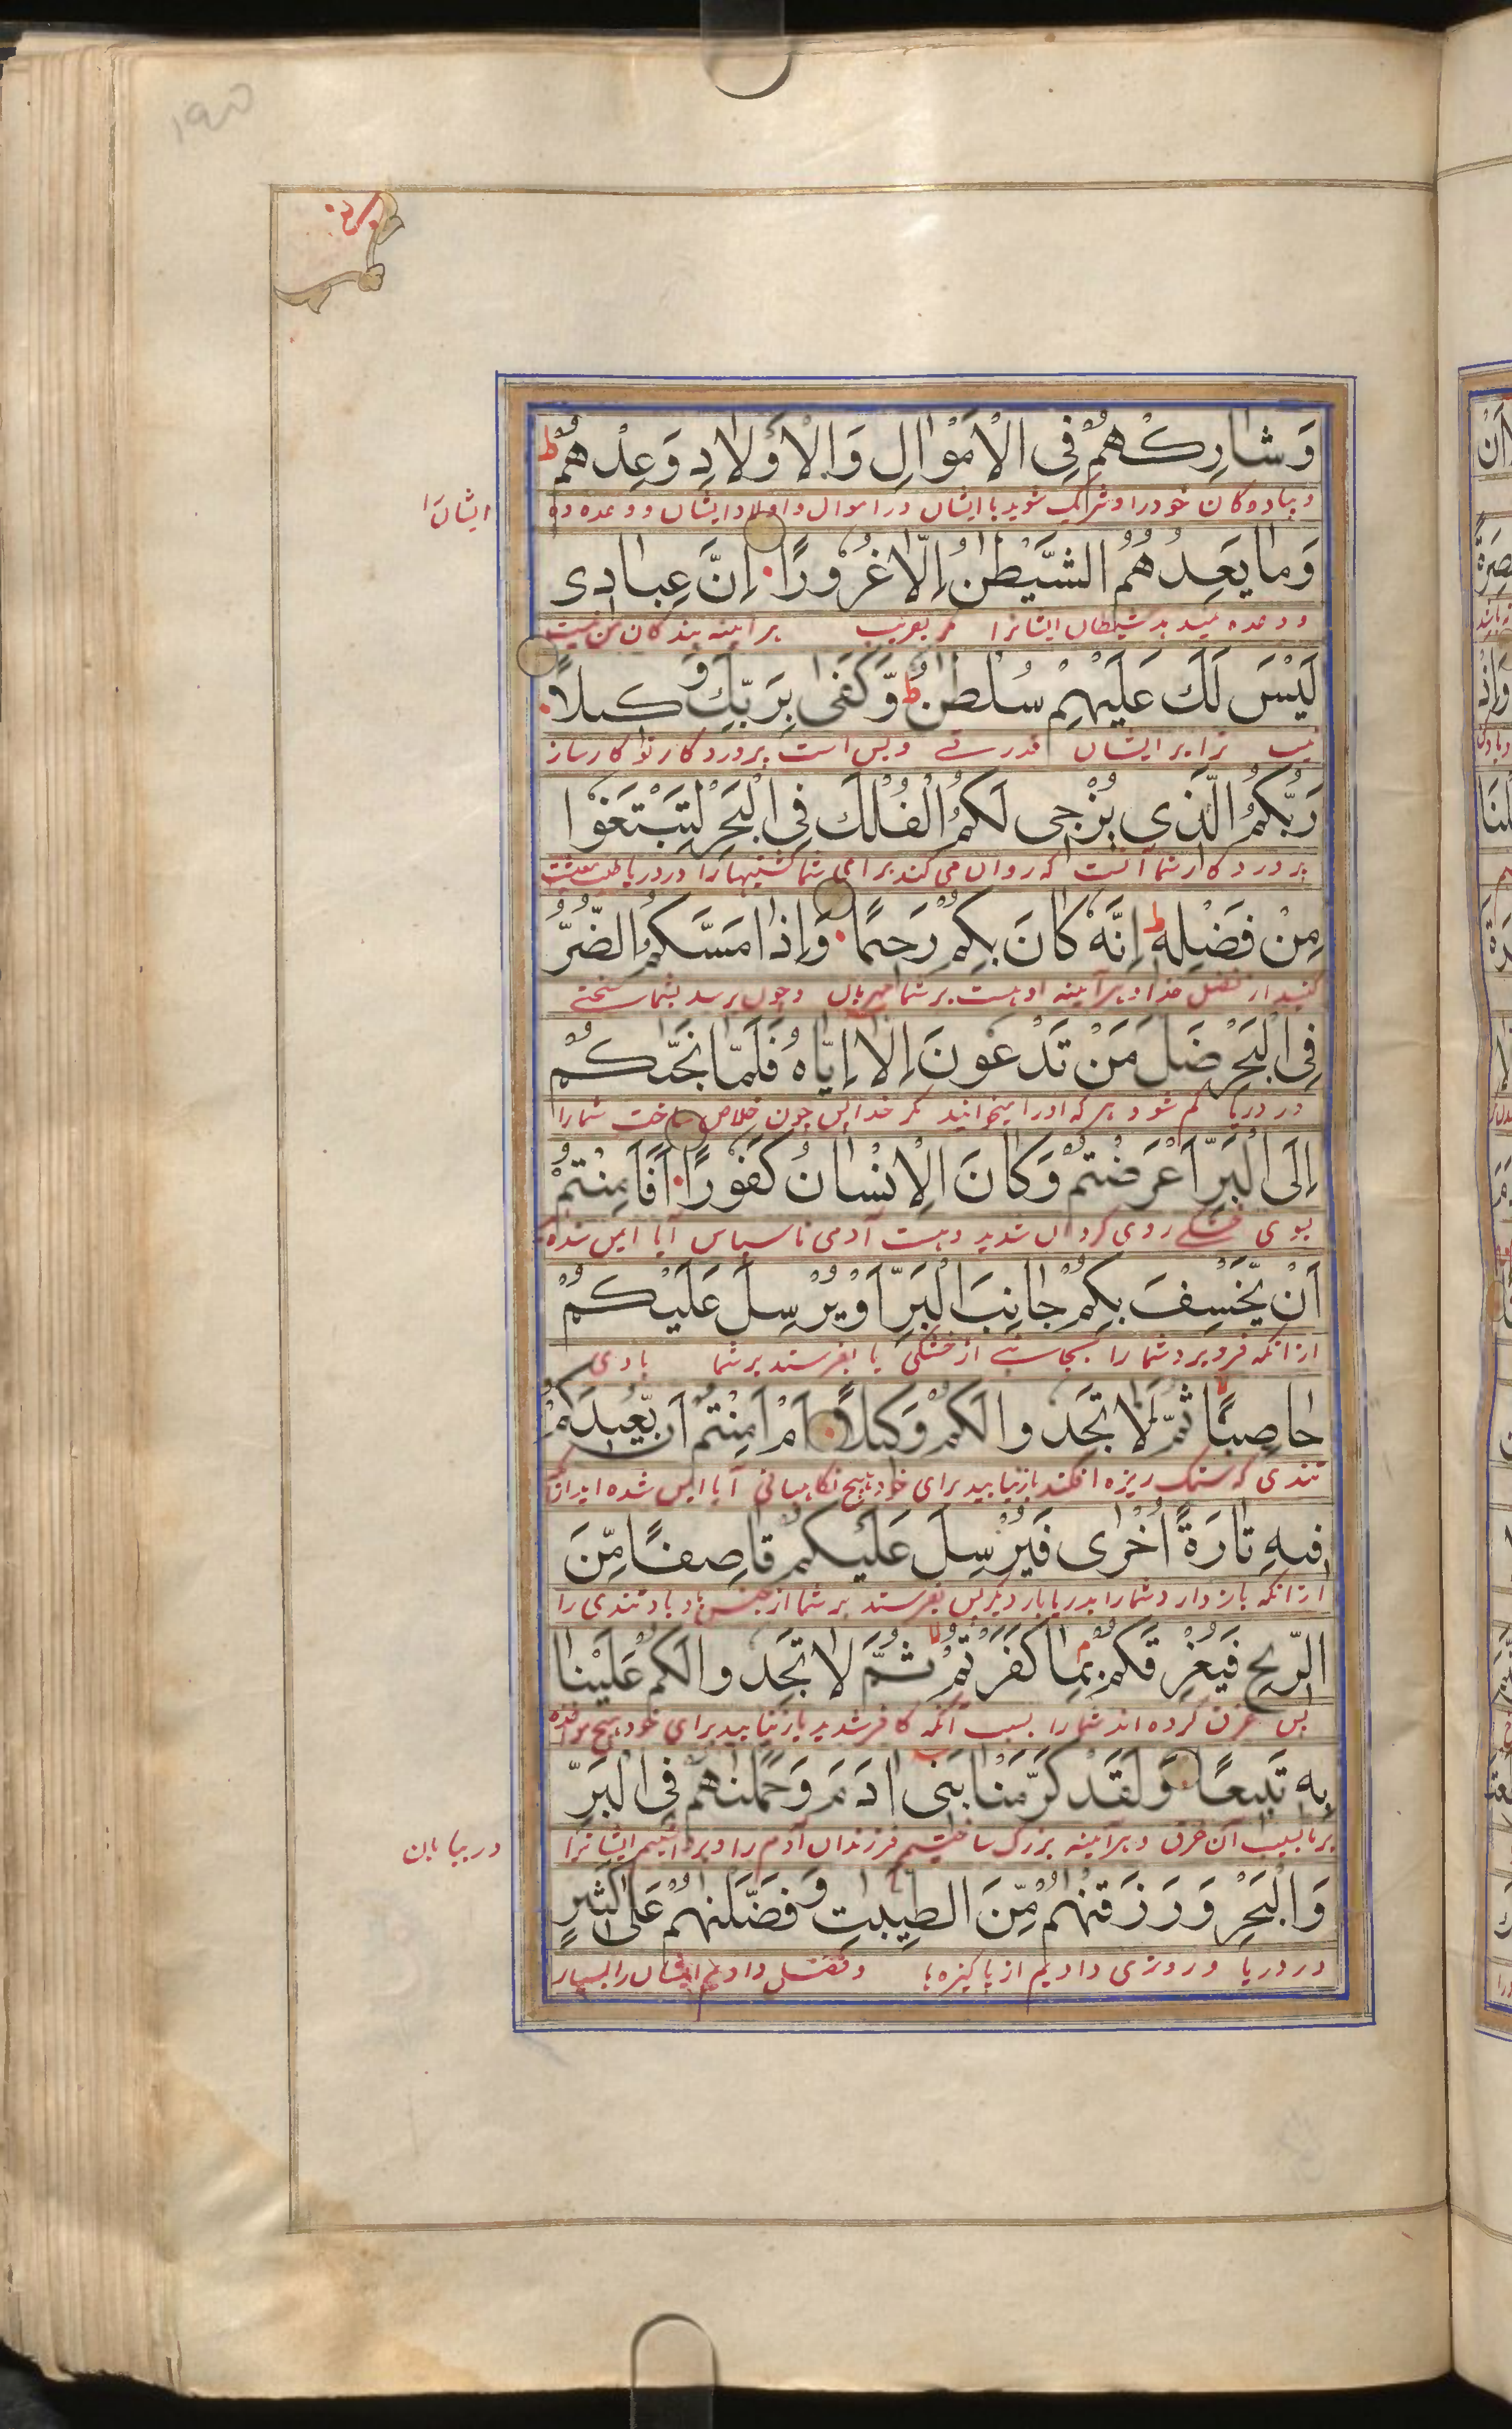 وَشارِكْهُمْ فِى الْاَمْوٰالِ وَالْاَوْلادِ وَعِدْهُمْ ط
و پیاده کان خود را و شریک شوید با ایشان در اموال و اولاد ایشان و وعده ده
ایشان را
وَمٰا يَعِدُهُمُ الشَّيْطٰنُ اِلّٰا غُرُورًا اِنَّ عِبٰادِى
و وعده نمیدهد شیطان ایشانرا مکر بفریب هر آینه بندکان من نیست
لَيْسَ لَكَ عَلَيْهِمْ سُلْطٰنٌ ط وَّكَفٰى بِرَبِّكَ وَكيلًا
نیست ترا بر ایشان قدرتے و بس است پروردکار تو کارساز
رَبُّكُمُ الَّذي يُزْجى لَكُمُ الْفُلْكَ فِى الْبَحْرِ لِتَبْتَغُوا
پروردکار شما آنست که روان می کند برای شما کشتیها را در دریا طلب معیشت
مِنْ فَضْلِهٖ ط اِنَّهٗ كٰانَ بِكُمْ رَحيمًا وَاِذٰا مَسَّكُمُ الضُّرُّ
کنید از فضل خدا و هر آینه او هست بر شما مهربان و چون برسد بشما سختے
فِى الْبَحْرِ ضَلَّ مَنْ تَدْعُونَ اِلّٰا اِيّٰاهُ فَلَمّٰا نَجّٰىكُمْ
در دریا کم شود هر که او را میخوانید مکر خدا پس چون خلاص ساخت شما را
اِلَى الْبَرِّ اَعْرَضْتُمْ وَكٰانَ الْاِنْسٰانُ كَفُورًا اَفَاَمِنْتُمْ
بسوی خشکے روی کردان شدید و هست آدمی ناسپاس آیا ایمن شده
اَنْ يَّخْسِفَ بِكُمْ جٰانِبَ الْبَرِّ اَوْ يُرْسِلَ عَلَيْكُمْ
از انکه فرو برد شما را بجانبے از خشکی یا بفرستد بر شما بادی
حٰاصِبًا ثُمَّ لٰا تَجِدُوا لَكُمْ وَكيلًا اَمْ اَمِنْتُمْ اَنْ يُّعيدَكُمْ
تندی که سنک ریزه افکند باز نیابید برای خود هیچ نکاهبانی آیا ایمن شده اید
فيهِ تٰارَةً اُخْرٰى فَيُرْسِلَ عَلَيْكُمْ قٰاصِفًا مِّنَ
از انکه باز دارد شما را بدریا بار دیکر پس بفرستد بر شما از جنس باد باد تندی را
الرّيحِ فَيُغْرِقَكُمْ بِمٰا كَفَرْتُمْ ثُمَّ لٰا تَجِدُوا لَكُمْ عَلَيْنٰا
پس غرق کرده اند شما را بسبب آنکه کافر شدید باز نیابید برای خود هیچ
بِه تَبيعًا وَلَقَدْ كَرَّمْنٰا بَنى اٰدَمَ وَحَمَلْنٰهُمْ فِى الْبَرِّ
بر ما بسبب آن غرق و هر آینه بزرک ساختیم فرزندان آدم را و برداشتیم ایشانرا
در بیابان
وَالْبَحْرِ وَرَزَقْنٰهُمْ مِّنَ الطَّيِّبٰتِ وَفَضَّلْنٰهُمْ عَلٰى كَثيرٍ
و در دریا و روزی دادیم از پاکیزه ها و تفضل دادیم ایشان را بسیار